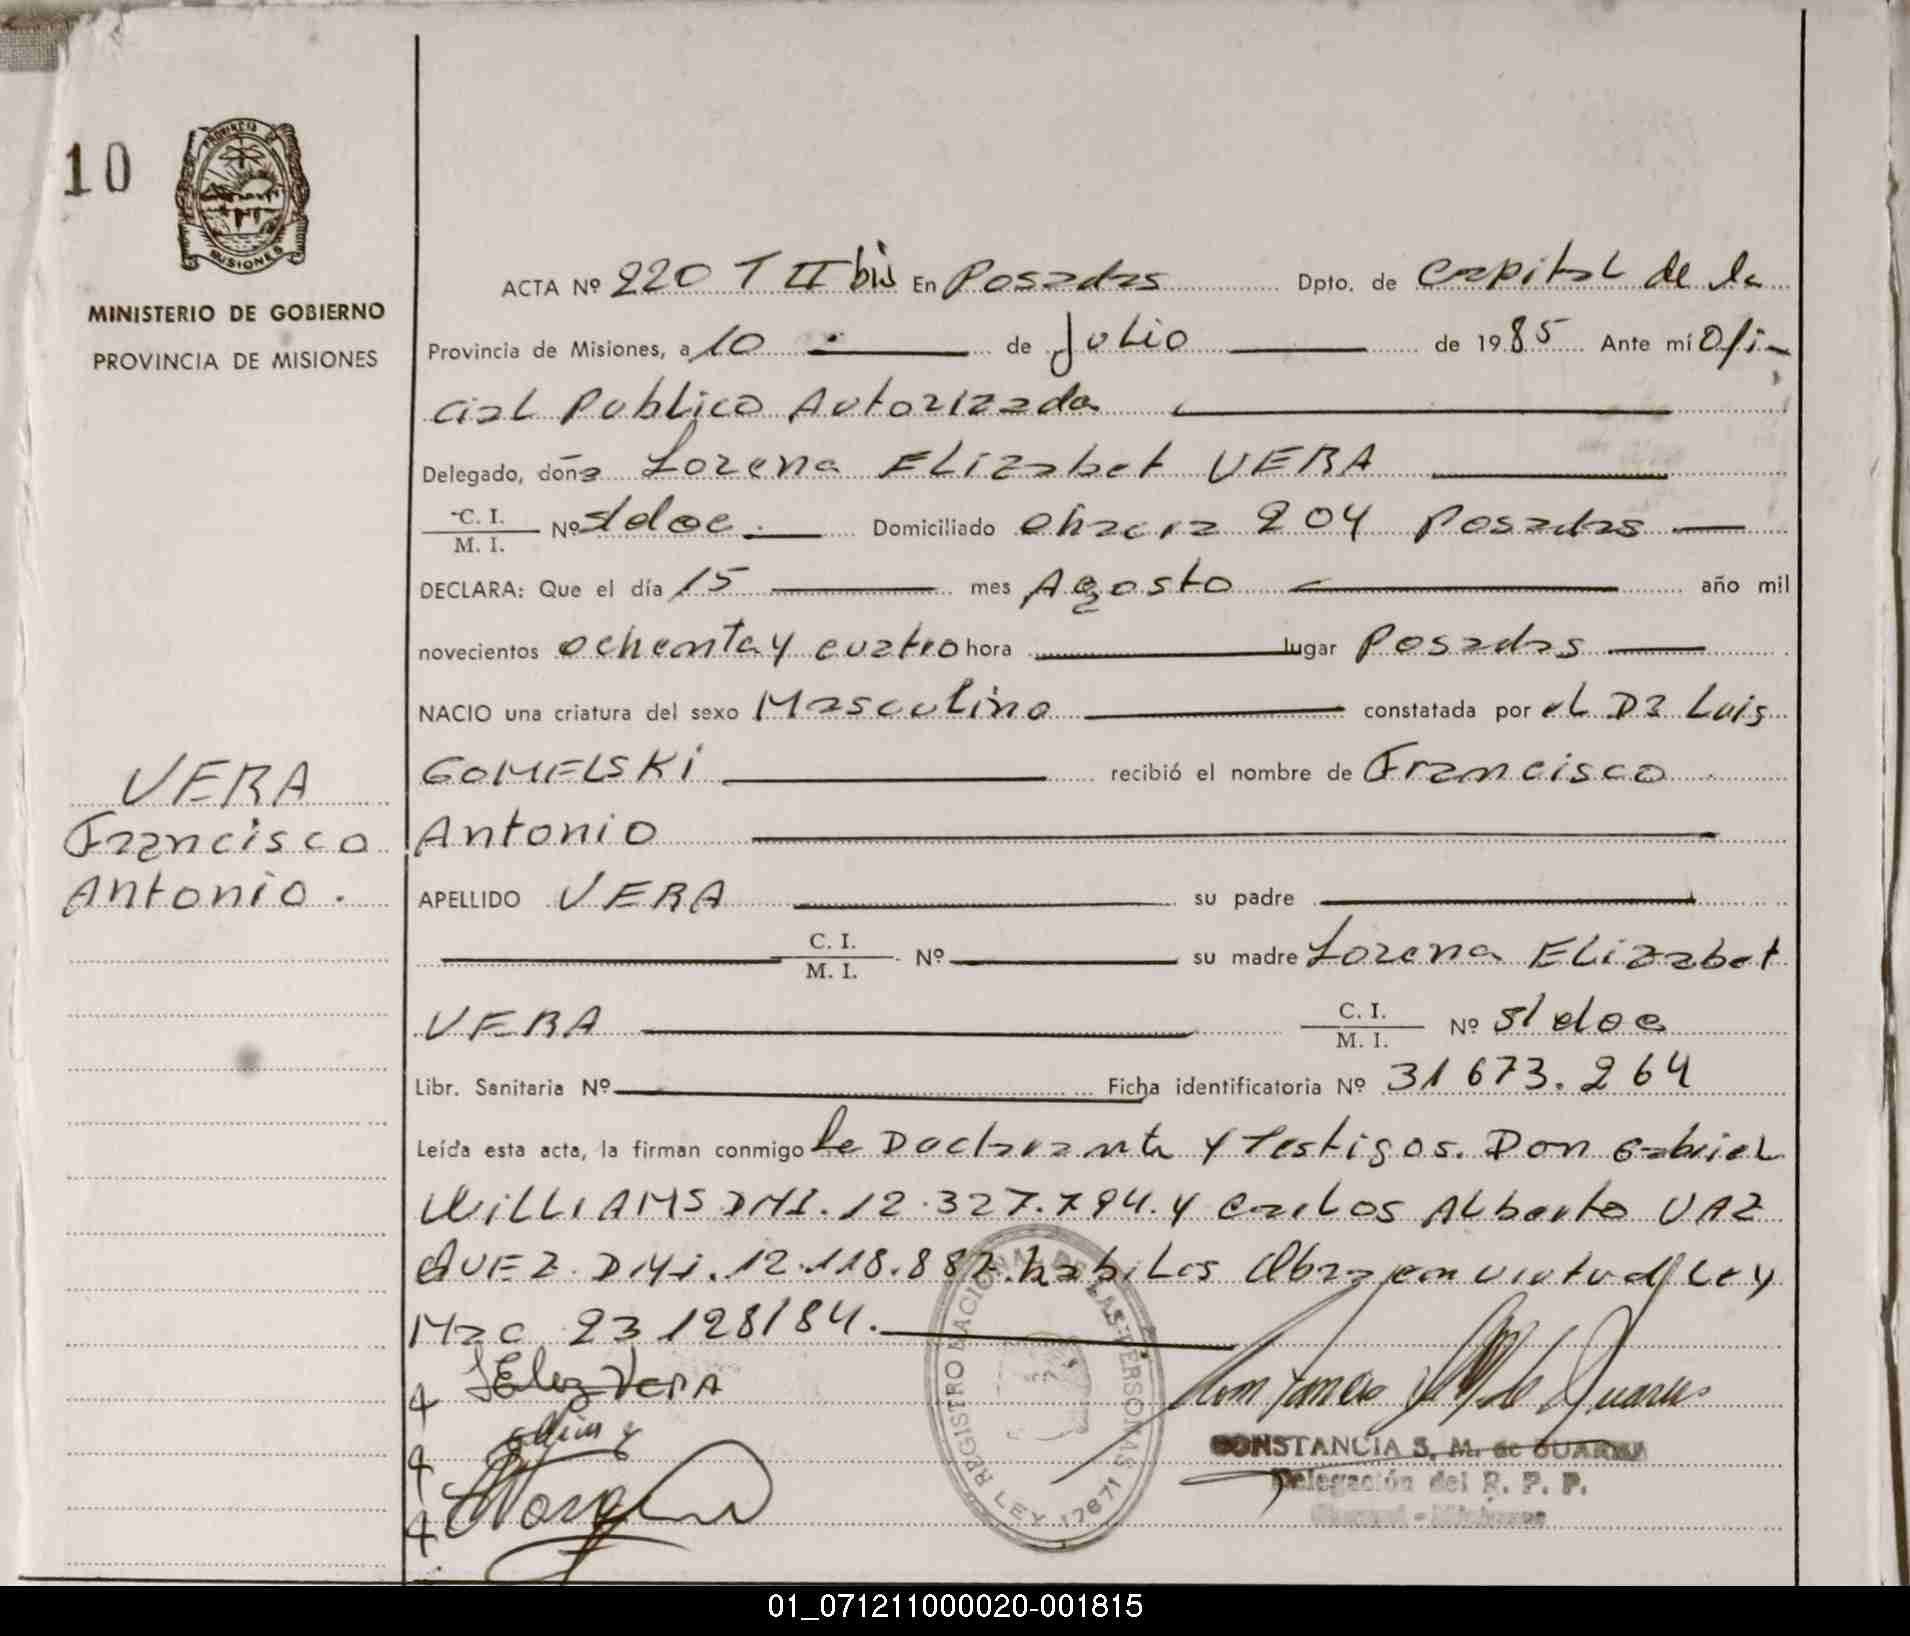 10
PROVINCIA DE
MISIONES
MINISTERIO DE GOBIERNO
PROVINCIA DE MISIONES
ACTA Nº 220 T II bis En Posadas Dpto. de Capital de la
Provincia de Misiones, a 10 de Julio de 1985 Ante mí Ofi-
cial Publico Autorizada
Delegado, doña Lorena Elizabet VERA
C. I.
M. I. Nº s/doc. Domiciliado chacra 204 Posadas
DECLARA: Que el día 15 mes Agosto año mil
novecientos ochenta y cuatro hora lugar Posadas
NACIO una criatura del sexo Masculino constatada por el Dr Luis
GOMELSKI recibió el nombre de Francisco
Antonio
VERA
Francisco
Antonio.
APELLIDO VERA su padre
C. I.
M. I. Nº su madre Lorena Elizabet
VERA C. I.
M. I. Nº s/doc
Libr. Sanitaria Nº Ficha identificatoria Nº 31673.264
Leída esta acta, la firman conmigo la Declarante y Testigos. Don Gabriel
WILLIAMS DNI. 12.327.794. y Carlos Alberto VAZ
QUEZ DNI. 12.118.887. habiles Obra en virtud Ley
Nac 23128/84.
VERA
REGISTRO NACIONAL DE LAS PERSONAS
LEY 17671
CONSTANCIA S. M. de DUARTE
Delegación del R. P. P.
01_071211000020-001815